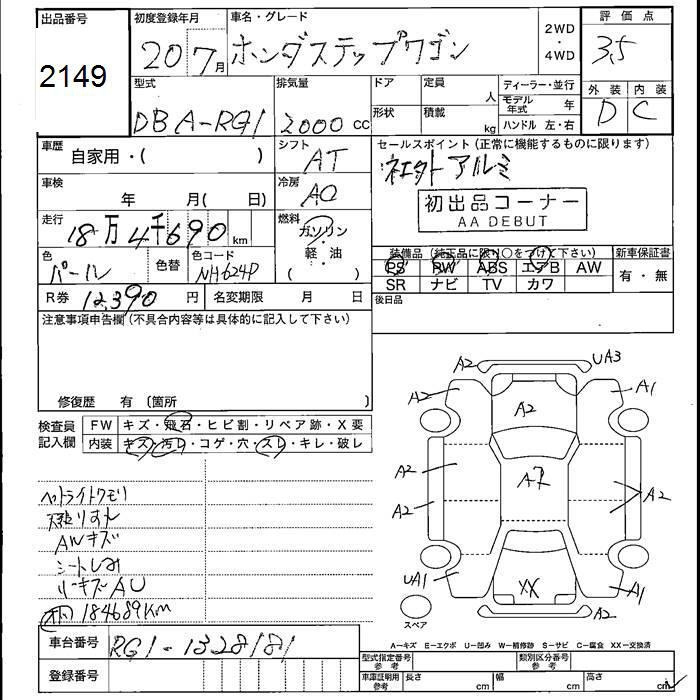 出品番号 初度登録年月 車名・グレード 2WD ・ 4WD 評価点
2149 20 7月 ホンダステップワゴン 3.5
型式 排気量 ドア 定員 人 ディーラー・並行 外装 内装
DBA-RG1 2000cc 形状 積載 kg モデル年式 年 D C
ハンドル 左・右
車歴 自家用・( ) シフト AT セールスポイント(正常に機能するものに限ります)
車検 年 月( 日) 冷房 AC アルミ
初出品コーナー
AA DEBUT
走行 18万4千690km 燃料 ガソリン・軽油( )
色 パール 色替 色コード NH624P 装備品(純正品に限り○をつけて下さい) 新車保証書
PS PW ABS エアB AW 有・無
SR ナビ TV カワ
R券 12,390円 名変期限 月 日 後日品
注意事項申告欄(不具合内容等は具体的に記入して下さい)
修復歴 有 (箇所 )
検査員記入欄 FW キズ・飛石・ヒビ割・リペア跡・X要
内装 キズ・汚れ・コゲ・穴・スレ・キレ・破レ
ヘットライトクモリ
天張りすれ
ALキズ
シートしみ
リーキズAU
184689KM
A2 UA3
A2 A1
A2
A2 A7 A2
A2
UA1 XX A1
A2
スペア
A=キズ E=エクボ U=凹み W=補修跡 S=サビ C=腐食 XX=交換済
車台番号 RG1-1328181 型式指定番号 参考 類別区分番号 参考
登録番号 車庫証明用 参考 長さ cm 幅 cm 高さ cm